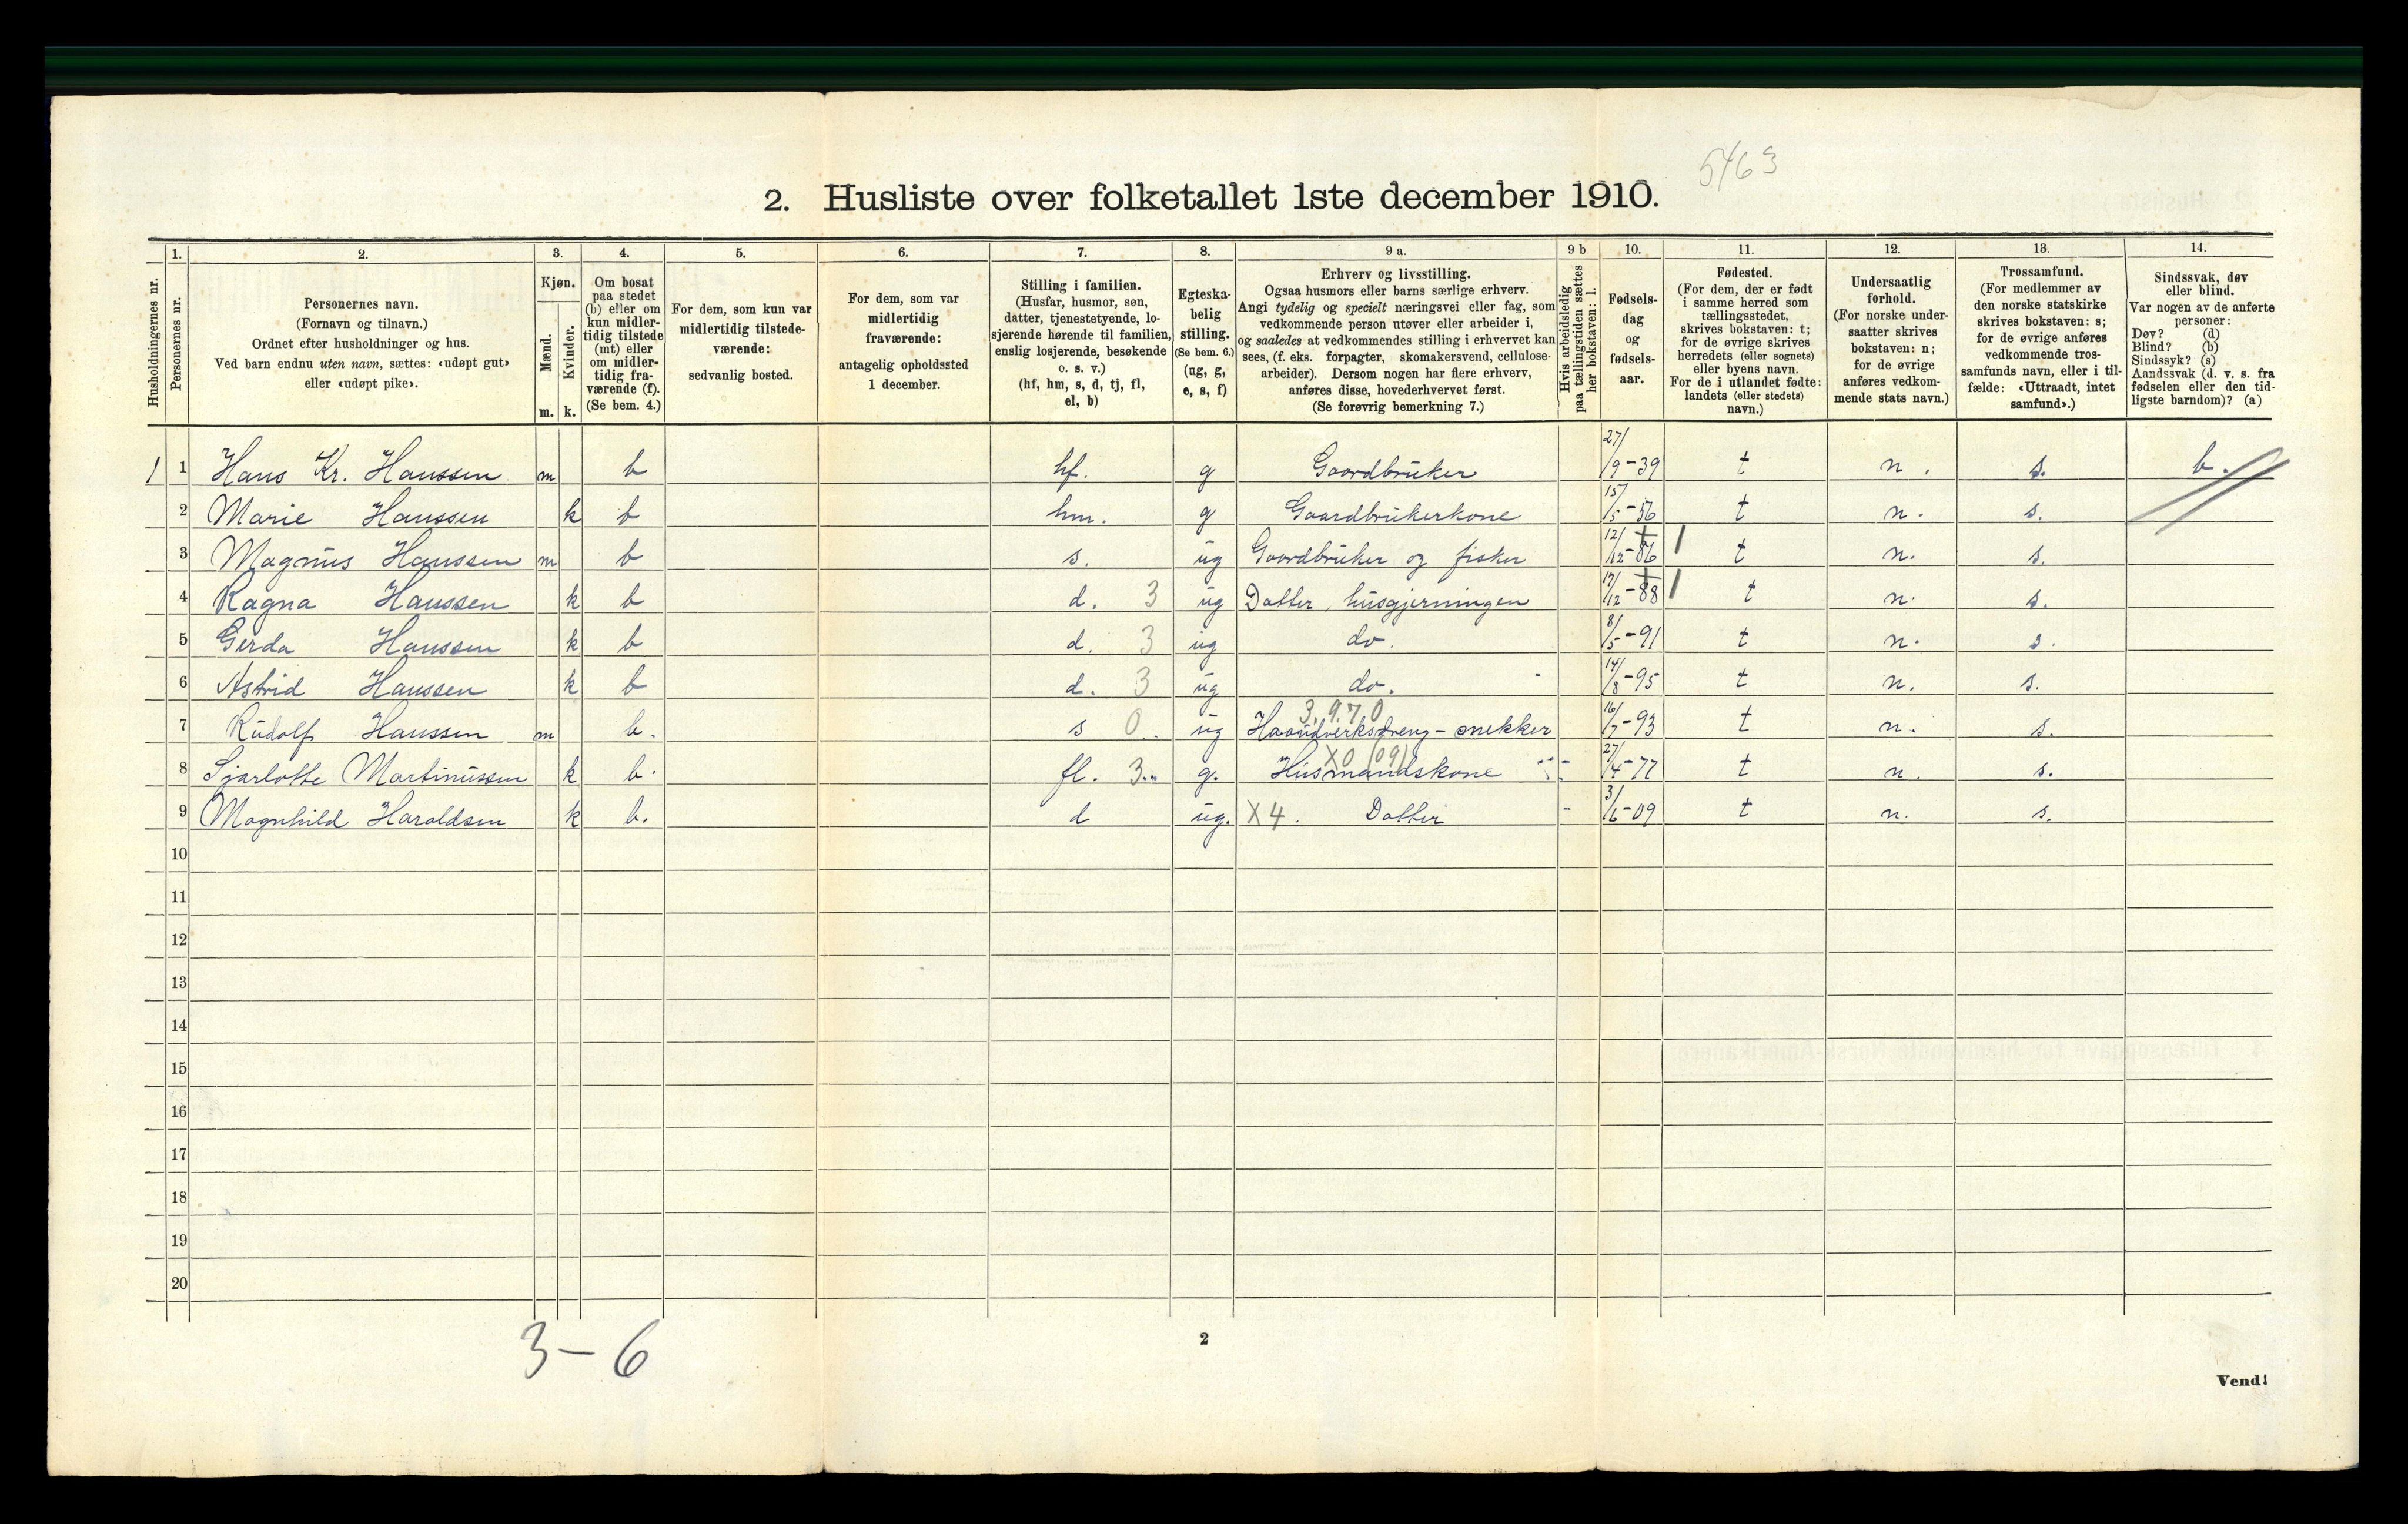 5463
2. Husliste over folketallet 1ste december 1910.
Husholdningernes nr.
1.
Personernes nr.
2.
Personernes navn.
(Fornavn og tilnavn.)
Ordnet efter husholdninger og hus.
Ved barn endnu uten navn, sættes: «udøpt gut»
eller «udøpt pike».
3.
Kjøn.
Mænd.
m.
Kvinder.
k.
4.
Om bosat
paa stedet
(b) eller om
kun midler-
tidig tilstede
(mt) eller
om midler-
tidig fra-
værende (f).
(Se bem. 4.)
5.
For dem, som kun var
midlertidig tilstede-
værende:
sedvanlig bosted.
6.
For dem, som var
midlertidig
fraværende:
antagelig opholdssted
1 december.
7.
Stilling i familien.
(Husfar, husmor, søn,
datter, tjenestetyende, lo-
sjerende hørende til familien,
enslig losjerende, besøkende
o. s. v.)
(hf, hm, s, d, tj, fl,
el, b)
8.
Egteska-
belig
stilling.
(Se bem. 6.)
(ug, g,
e, s, f)
9 a.
Erhverv og livsstilling.
Ogsaa husmors eller barns særlige erhverv.
Angi tydelig og specielt næringsvei eller fag, som
vedkommende person utøver eller arbeider i,
og saaledes at vedkommendes stilling i erhvervet kan
sees, (f. eks. forpagter, skomakersvend, cellulose-
arbeider). Dersom nogen har flere erhverv,
anføres disse, hovederhvervet først.
(Se forøvrig bemerkning 7.)
9 b
Hvis arbeidsledig
paa tællingstiden sættes
her bokstaven: l.
10.
Fødsels-
dag
og
fødsels-
aar.
11.
Fødested.
(For dem, der er født
i samme herred som
tællingsstedet,
skrives bokstaven: t;
for de øvrige skrives
herredets (eller sognets)
eller byens navn.
For de i utlandet fødte:
landets (eller stedets)
navn.)
12.
Undersaatlig
forhold.
(For norske under-
saatter skrives
bokstaven: n;
for de øvrige
anføres vedkom-
mende stats navn.)
13.
Trossamfund.
(For medlemmer av
den norske statskirke
skrives bokstaven: s;
for de øvrige anføres
vedkommende tros-
samfunds navn, eller i til-
fælde: «Uttraadt, intet
samfund».)
14.
Sindssvak, døv
eller blind.
Var nogen av de anførte
personer:
Døv? (d)
Blind? (b)
Sindssyk? (s)
Aandssvak (d. v. s. fra
fødselen eller den tid-
ligste barndom)? (a)
1 1 Hans Kr. Hanssen m b hf. g Gaardbruker 27/9-39 t n. s. b.
2 Marie Hanssen k b hm. g Gaardbrukerkone 15/5-56 t n. s.
3 Magnus Hanssen m b s. ug Gaardbruker og fisker 12/12-86 t n. s.
4 Ragna Hanssen k b d. 3 ug Datter, husgjerningen 17/12-88 t n. s.
5 Gerda Hanssen k b d. 3 ug do. 8/5-91 t n. s.
6 Astrid Hanssen k b d. 3 ug do. 14/8-95 t n. s.
3.9.7.0
7 Rudolf Hanssen m b. s 0 ug Haandverksdreng - snekker 16/7-93 t n. s.
X0 (09)
8 Sjarlotte Martinussen k b. fl. 3 g. Husmandskone 27/4-77 t n. s.
9 Magnhild Haraldsen k b. d ug. X4. Datter - 3/6-09 t n. s.
10
11
12
13
14
15
16
17
18
19
20
3-6
2
Vend!